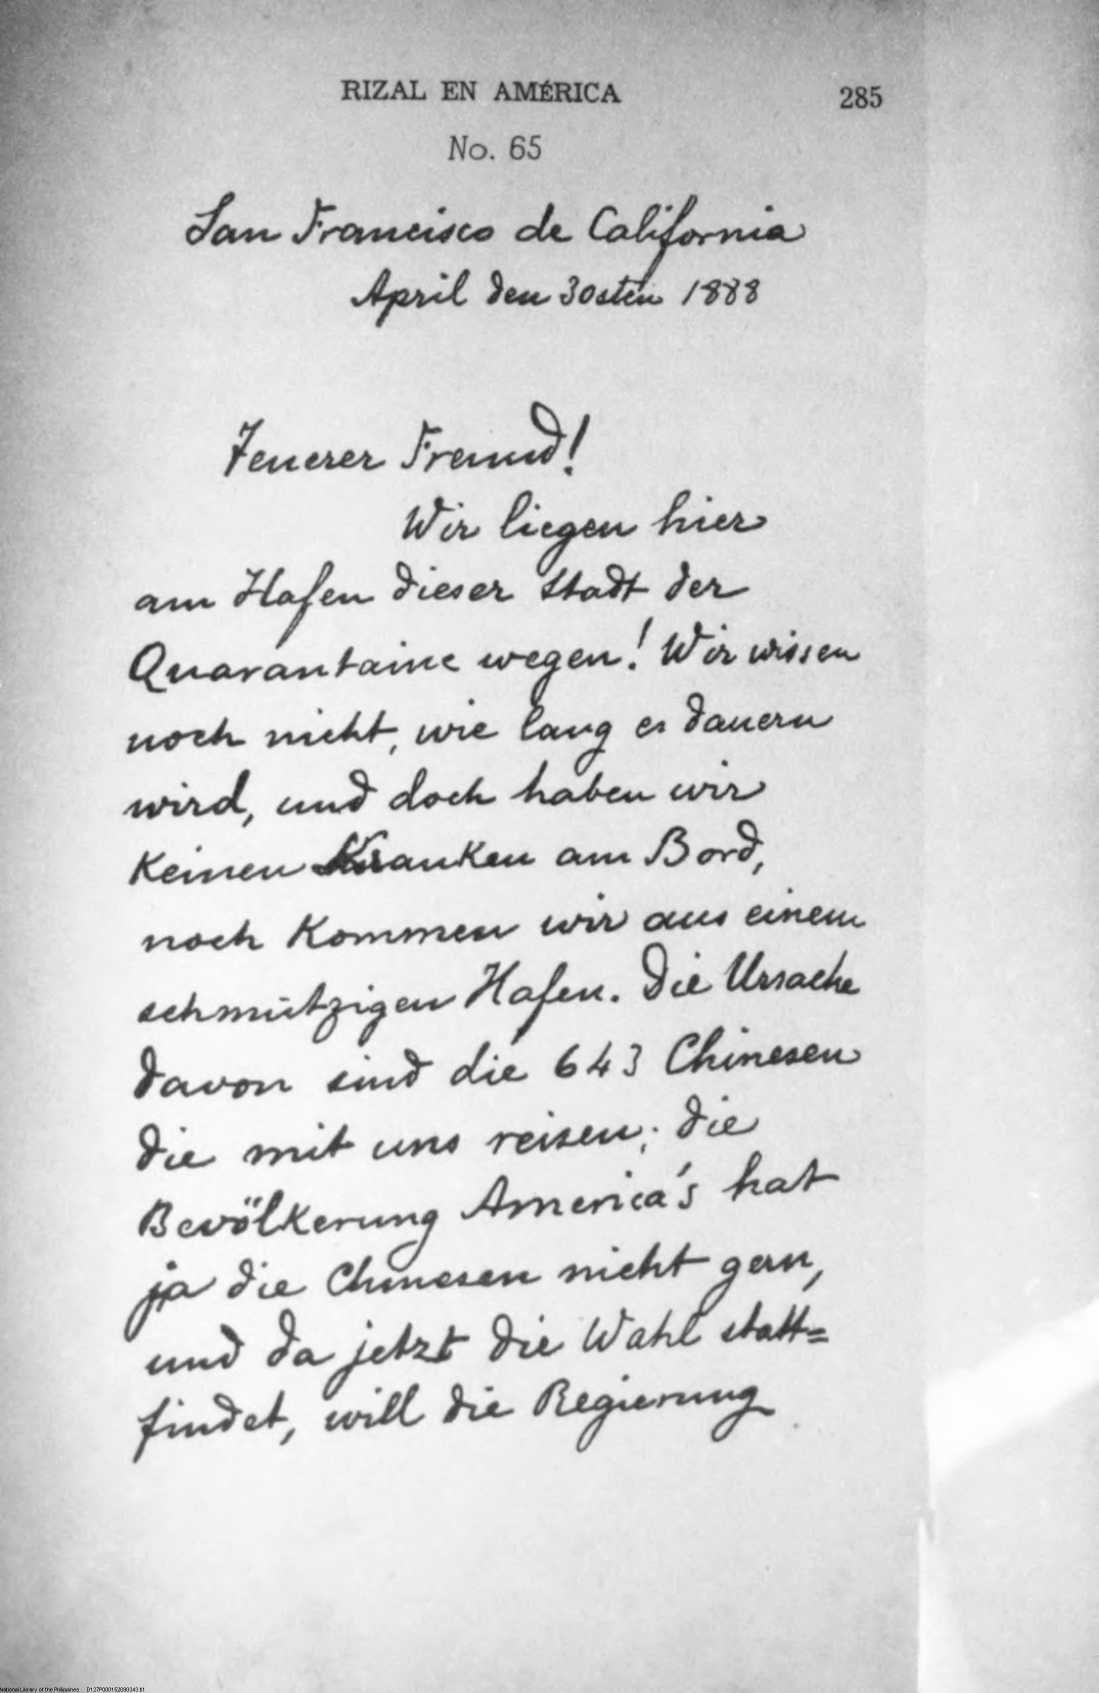 RIZAL EN AMÉRICA 285
No. 65
San Francisco de California
April den 30sten 1888
Teuerer Freund!
Wir liegen hier
am Hafen dieser Stadt der
Quarantaine wegen! Wir wissen
noch nicht, wie lang es dauern
wird, und doch haben wir
keinen Kranken am Bord,
noch kommen wir aus einem
schmützigen Hafen. Die Ursache
davon sind die 643 Chinesen
die mit uns reisen; die
Bevölkerung America's hat
ja die Chinesen nicht gern,
und da jetzt die Wahl statt=
findet, will die Regierung
National Library of the Philippines